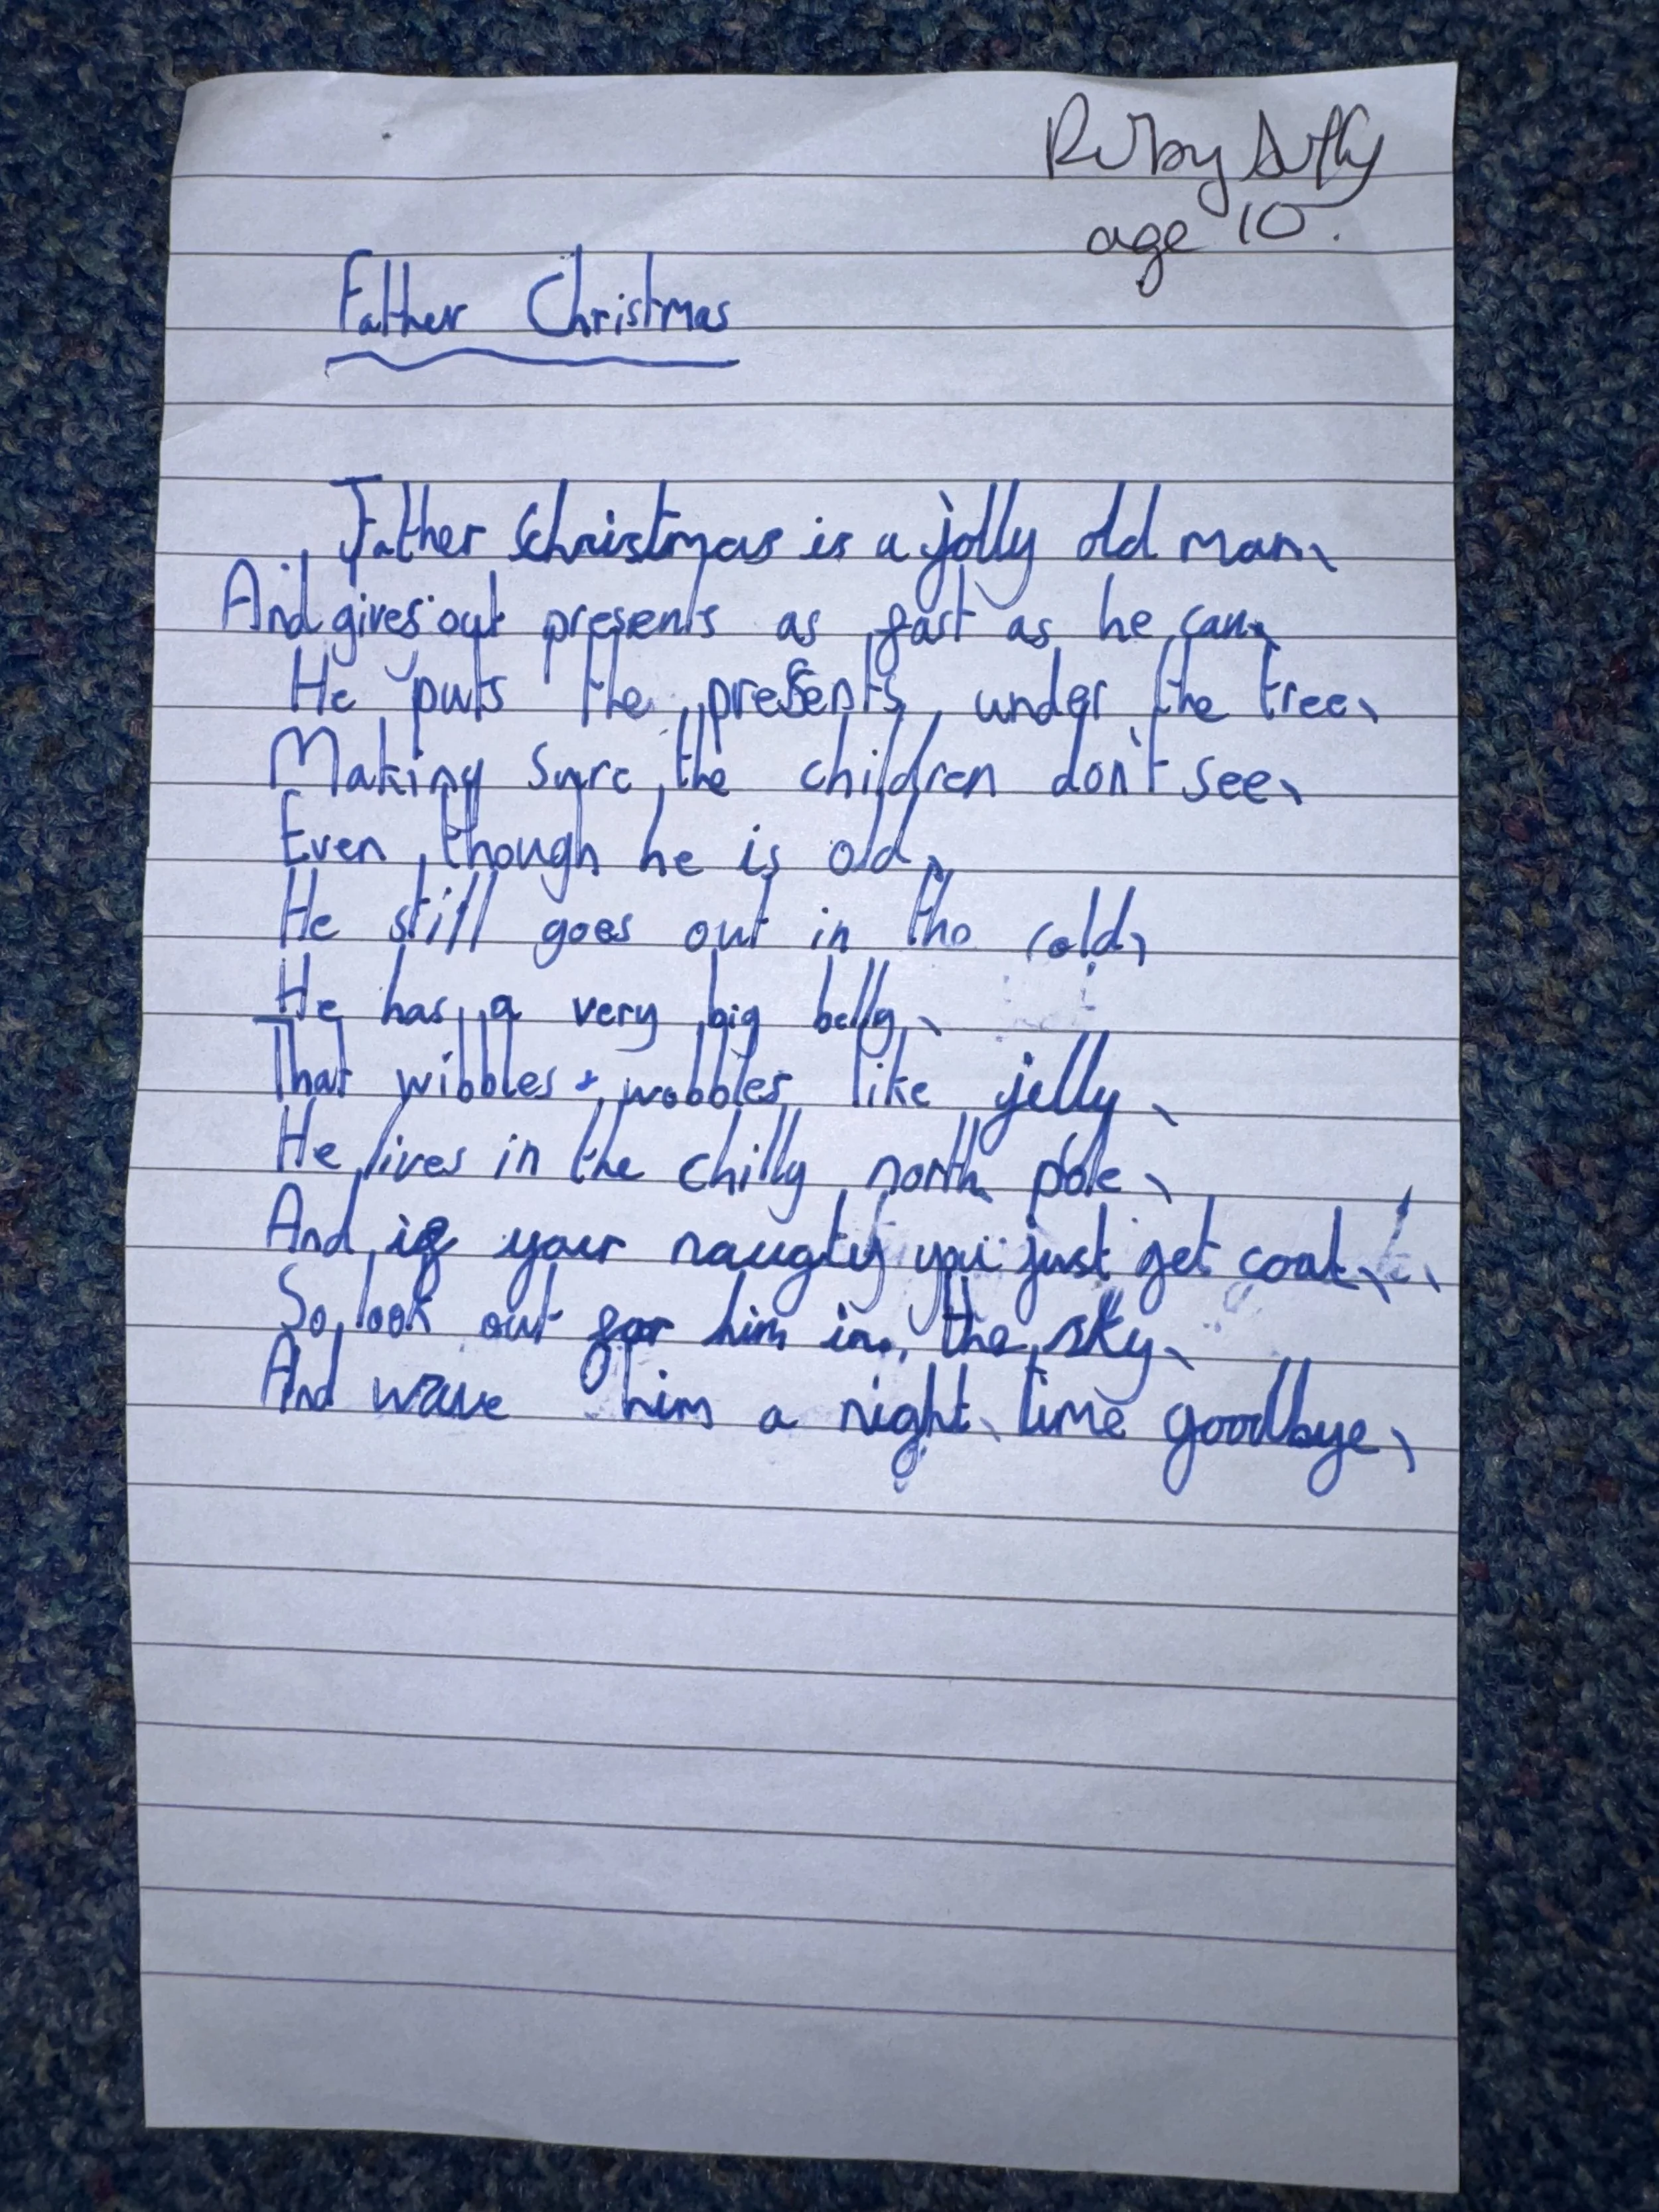 Ruby
age 10.
Father Christmas
Father Christmas is a jolly old man,
And gives out presents as fast as he can,
He puts the presents under the tree,
Making sure the children don't see,
Even though he is old,
He still goes out in the cold,
He has a very big belly,
That wibbles + wobbles like jelly,
He lives in the chilly north pole,
And if your naughty you just get coal,
So look out for him in the sky,
And wave him a night time goodbye,